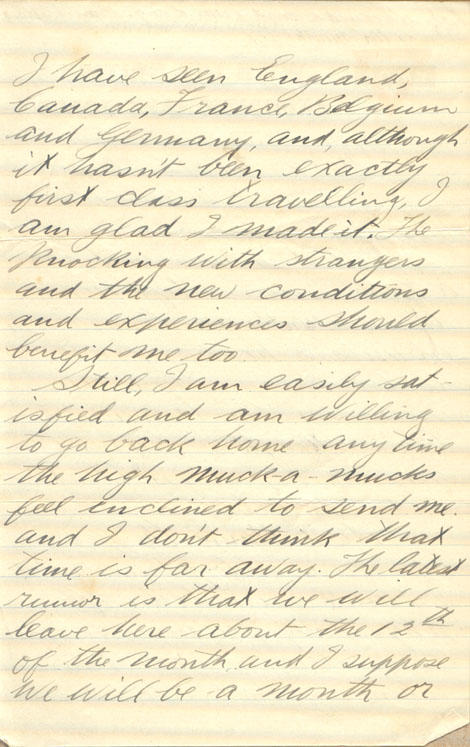 I have seen England,
Canada, France, Belgium
and Germany, and, although
it hasn't been exactly
first class travelling, I
am glad I made it. The
knocking with strangers
and the new conditions
and experiences should
benefit me too.
Still, I am easily sat-
isfied and am willing
to go back home anytime
the high muck-a-mucks
feel inclined to send me.
and I don't think that
time is far away. The latest
rumor is that we will
leave here about the 12th
of the month and I suppose
we will be a month or